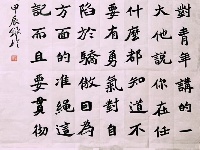 對青年講的一
大他說你在任
什麼都知道不
要勇氣對自
陷於驕傲因為
方面的準繩這
記而且要貫彻
甲辰